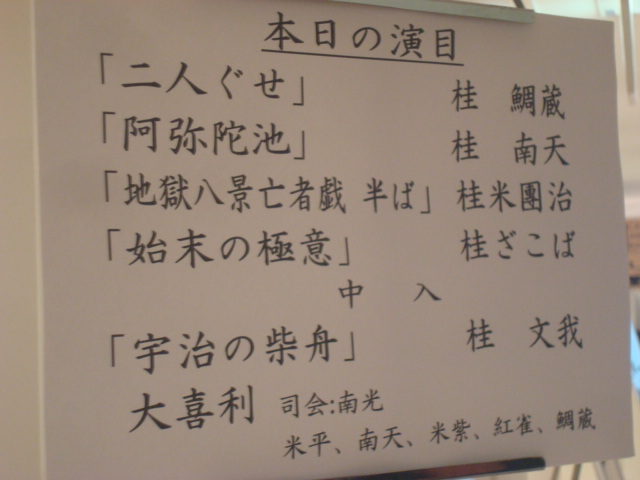 本日の演目
「二人ぐせ」 桂 鯛蔵
「阿弥陀池」 桂 南天
「地獄八景亡者戯 半ば」 桂米團治
「始末の極意」 桂ざこば
中 入
「宇治の柴舟」 桂 文我
大喜利 司会:南光
米平、南天、米紫、紅雀、鯛蔵